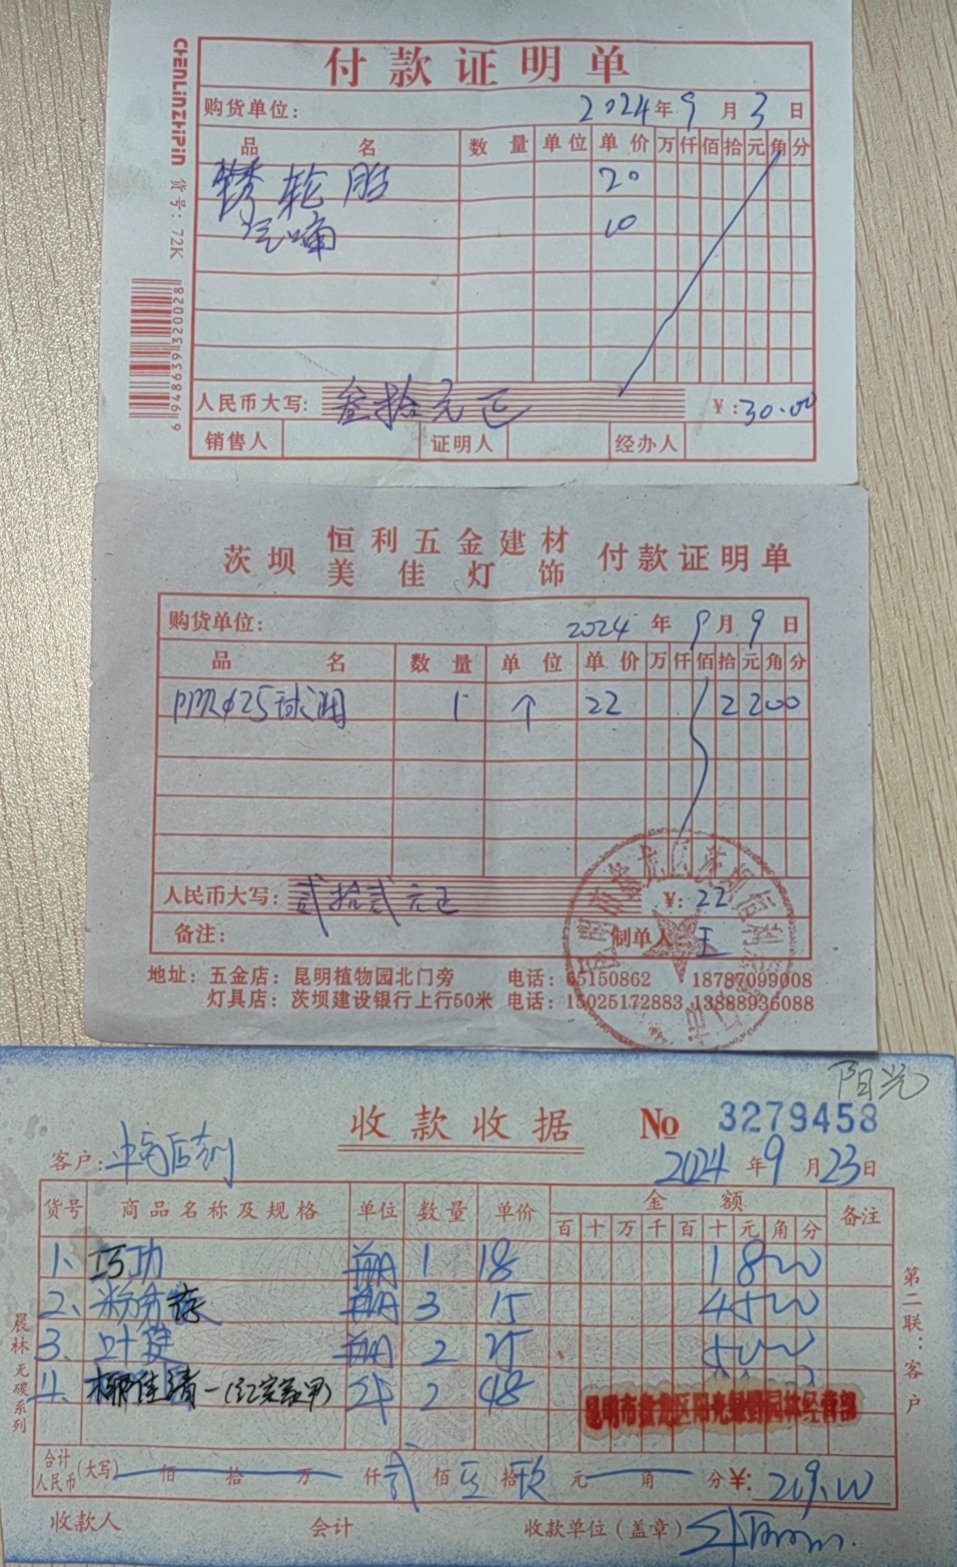 CHENLINZHIPIN 货号: 72K
付款证明单
购货单位: 2024年9月3日
品名 数量 单位 单价 万仟佰拾元角分
轮胎 20
气嘴 10
人民币大写: 叁拾元正 ¥:30.00
销售人 证明人 经办人
茨坝 恒利五金建材 付款证明单
美佳灯饰
购货单位: 2024年9月9日
品名 数量 单位 单价 万仟佰拾元角分
φ25球阀 1 个 22 2200
人民币大写: 贰拾贰元正 ¥: 22
备注: 制单人: 王
地址: 五金店: 昆明植物园北门旁 电话: 65150862 18787099008
灯具店: 茨坝建设银行上行50米 电话: 15025172883 13888936088
阳光
收款收据 No 3279458
客户: 2024年9月23日
货号 商品名称及规格 单位 数量 单价 金额 备注
百十万千百十元角分
1、巧功 瓶 1 18 1800
2、 瓶 3 15 4500
3、叶 瓶 2 25 5000
4、 2 48
第二联:客户
晨林 无碳系列
合计人民币(大写) 佰 拾 万 仟贰佰 拾玖元 角 分 ¥:
收款人 会计 收款单位(盖章)